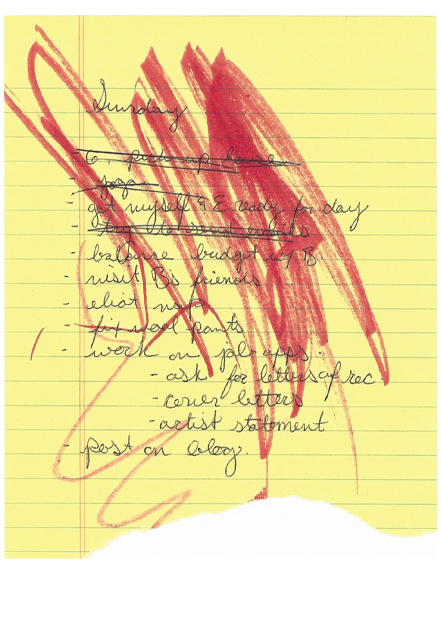 Sunday
- pick up house
- yoga
- get myself & E ready for day
-
- balance budget w/ B.
- visit B's friends
- eliot nap
- fix wool pants
- work on job apps:
- ask for letters of rec
- cover letters
- artist statement
- post on blog.